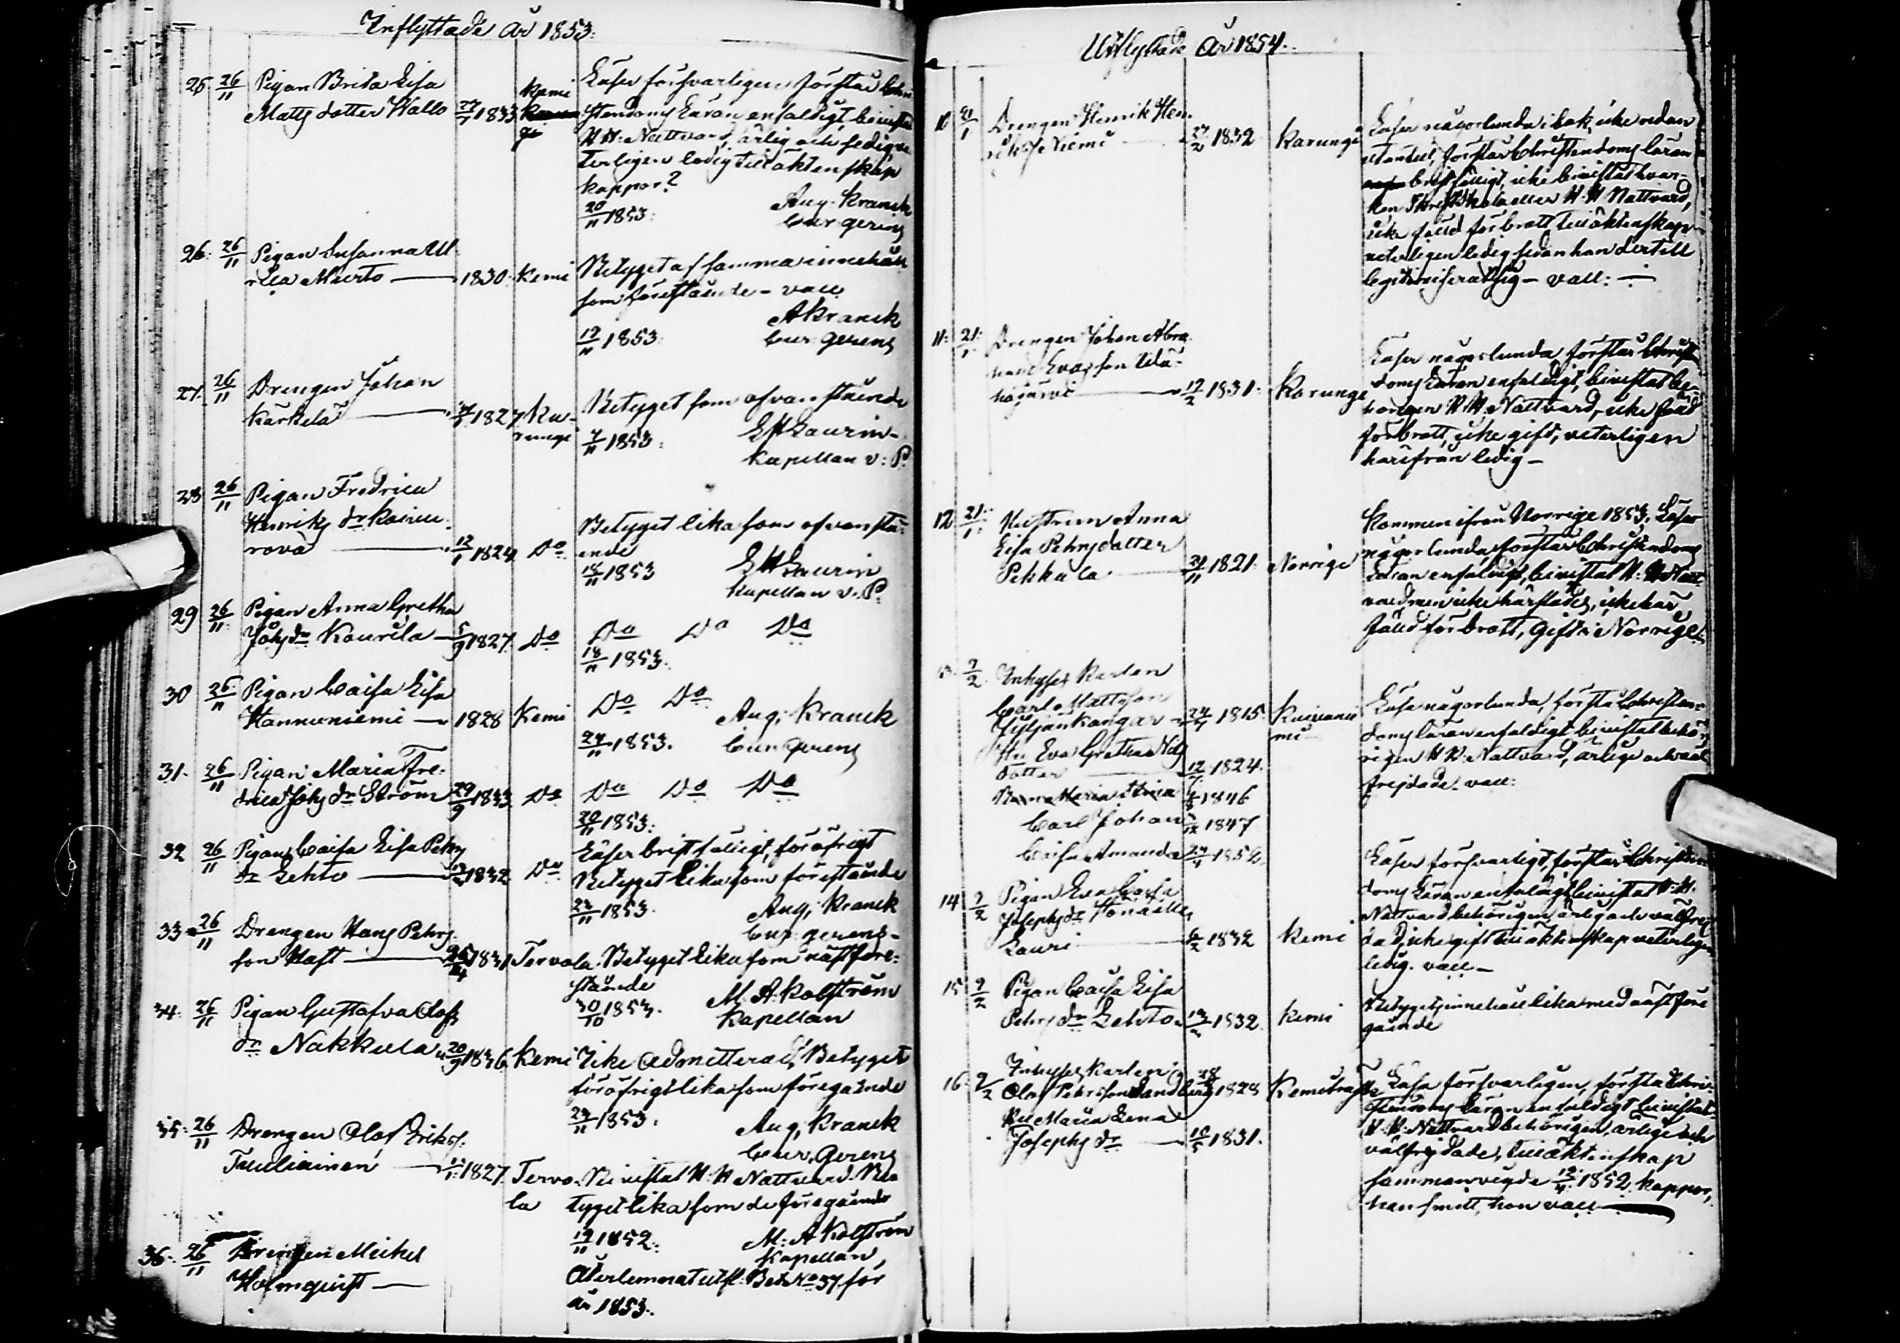 Inflyttade år 1853.
25. 26/11 Pigan Brita Lisa
Matts dotter Wallo 27/7 1833 Kemi
Läser försvarligen förstår Chri-
stendoms Läran enfaldigt, bivistat
H. H. Nattvard, ärlig och fredig ve-
terligen ledig till äktenskap
koppor?
20/11 1853. Aug. Kranck
Cur gerens
26. 26/11 Pigan Susanna Ul-
rica Murto — 1830. Kemi
Betyget af samma innehåll
som förestående – vacc
A Kranck
19/11 1853. Cur. gerens
27. 26/11 Drengen Johan
Karkela — 1827 Ka-
rungi
Betyget som ofvanstående
7/11 1853. E H Laurin-
Kapellan v. P.
28. 26/11 Pigan Fredrica
Henriks dr
— 12/1 1824 Do
Betyget lika som ofvanstå-
ende
18/11 1853 E H Laurin
Kapellan v. P.
29 26/11 Pigan Anna Gretha
Johs dr Kourila — 5/9 1827. Do
Do Do Do
18/11 1853.
30 26/11 Pigan Caisa Lisa
Hannuniemi — 1828 Kemi
Do Do
Aug. Kranck
24/11 1853. Cur gerens
31. 26/11 Pigan Maria Fre-
drica Johs dr Ström 29/9 1833 Do
Do Do Do
20/11 1853.
32 26/11 Pigan Caisa Lisa Pehrs
dr Lehto — 1832 Do
Läser bristfälligt, föröfrigt
Betyget lika som förestående
24/11 1853. Aug. Kranck
Cur gerens-
33 26/11 Drengen Hans Pehrs-
son Haft — 1831 Tervola
Betyget lika som nästföre-
stående
30/10 1853. M. A. Kolström
Kapellan
34. 26/11 Pigan Gustafva Olofs
dr Nakkula 20/9 1836 Kemi
Icke Admitterad, Betyget
föröfrigt lika som föregående
24/11 1853. Aug. Kranck
Cur. Gerens
35. 26/11 Drengen Olof Eriks.
Tuuliainen — 1827. Tervo-
la
Bivistat H. H. Nattvard. Be-
tyget lika som de föregående
19/11 1852. M. A Kolström
Kapellan
36. 26/11 Drengen Mickel
Holmquist —
Återlemnat utfl. Bet. No 37 för
år 1853.
Utflyttade År 1854.
10 21/1 Drengen Henrik Hen-
riks. Niemi — 27/2 1832 Karungi
Läser någorlunda i bok, icke redan
utantill, förstår Christendoms läran
bristfälligt, icke bivistat hvar-
ken Skriftskola eller H. H Nattvard,
icke fälld för brott till äktenskap
veterligen ledig sedan han dertill
legitimiserat sig – vacc: —
11. 21/1 Drengen Johan Abra-
ham Evasson
— 12/2 1831. Karungi
Läser någorlunda, förstår Christen-
doms Läran enfaldigt, bivistat be-
hörigen H. H. Nattvard, icke fälld
för brott, icke gift, veterligen
härifrån ledig –
12. 21/1 Hustrun Anna
Lisa Pehrsdotter
Pekkala — 24/11 1821. Norrige
Kommen ifrån Norrige 1853, Läser
någorlunda, förstår Christendoms
Läran enfaldigt, bivistat H. H Natt-
vard men icke härstädes, icke här
fälld för brott, Gift i Norrige.
13. 7/2. Inhyses Karlen
Carl Mattsson
24/7 1815 Kuivanie-
mi
Hu. Eva Gretha Nils
dotter — 12/7 1824.
Barn Maria Stina 1846
Carl Johan 1847
Caisa Amanda 1852
Läsa någorlunda, förstå Christen-
doms läran enfaldigt, bivistat behö-
rigen H. H. Nattvard, ärlige och väl-
frejdade. vacc:
14 7/2 Pigan Eva Caisa
Josephs dr
Lauri — 6/2 1832 Kemi
Läser försvarligt, förstår Christen-
doms Läran enfaldigt, bivistat H. H.
Nattvard behörigen, ärlig och välfrej-
dad, icke gift till äktenskap veterligen
ledig. vacc –
15 9/2 Pigan Caisa Lisa
Pehrs dr Lehto. 1832. Kemi
Betygets innehåll lika med nästföre-
gående
16. 9/2 Inhyses Karlen
Olof Pehrsson Sandberg 1828 Kemiträsk
Hu Maria Lena
Josephs dr — 1831.
Läsa försvarligen, förstå Chri-
stendoms Läran enfaldigt, bivistat
H. H. Nattvard behörigen, ärlige och
välfrejdade, till äktenskap
sammanvigde 1852. koppor,
han smitt, hon vacc —